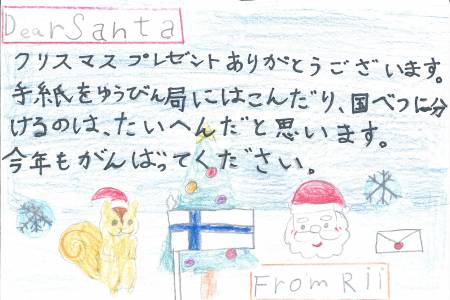 Dear Santa
クリスマスプレゼントありがとうございます。
手紙をゆうびん局にはこんだり、国べつに分
けるのは、たいへんだと思います。
今年もがんばってください。
From Rii